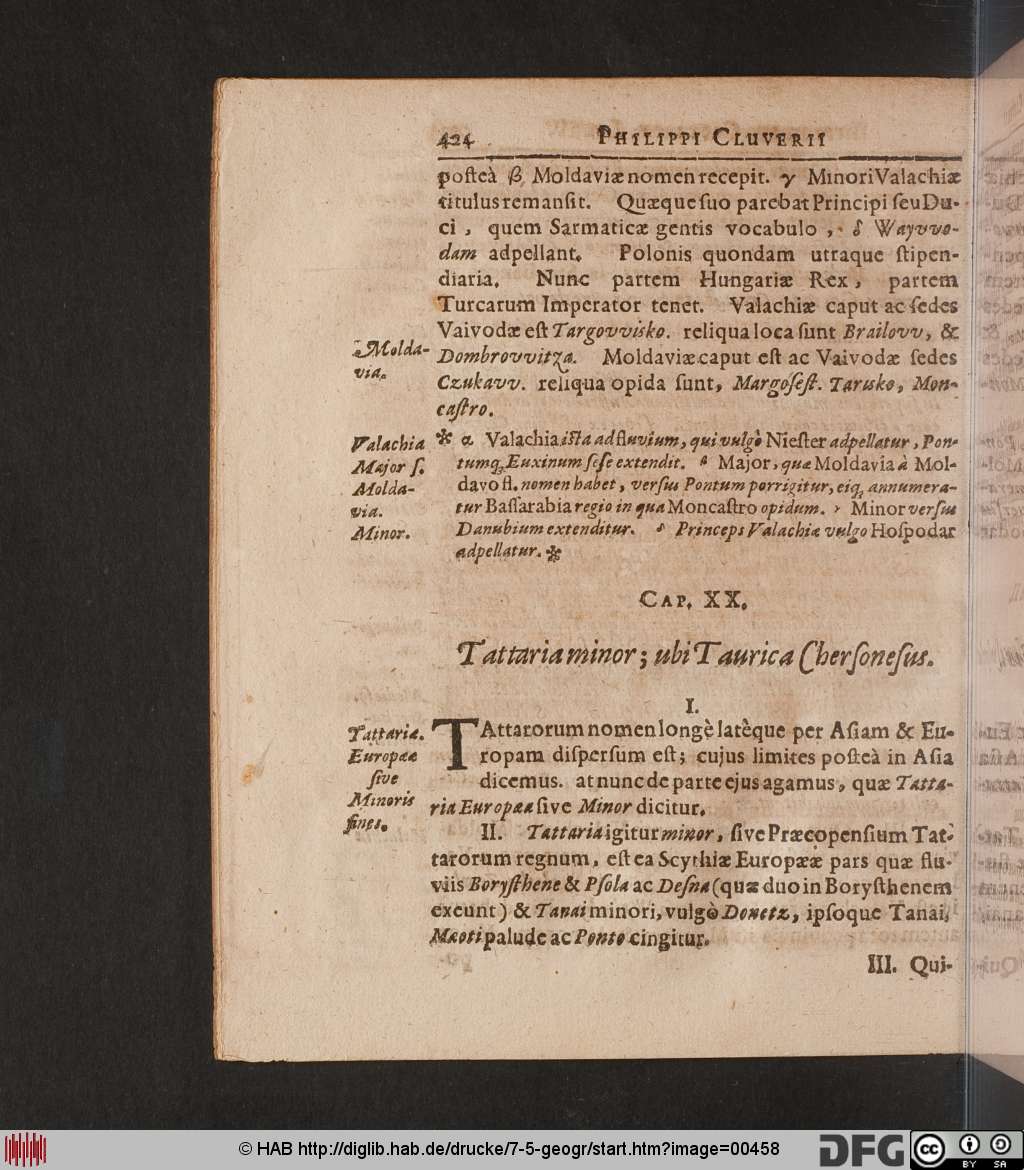 424 PHILIPPI CLUVERII
poſteà β Moldaviæ nomen recepit. γ Minori Valachiæ
titulus remanſit. Quæque ſuo parebat Principi ſeu Du-
ci, quem Sarmaticæ gentis vocabulo, δ Wayvvo-
dam adpellant. Polonis quondam utraque ſtipen-
diaria. Nunc partem Hungariæ Rex, partem
Turcarum Imperator tenet. Valachiæ caput ac ſedes
Vaivodæ eſt Targovvisko. reliqua loca ſunt Brailovv, &
Dombrovvitza. Moldaviæ caput eſt ac Vaivodæ ſedes
Czukavv. reliqua opida ſunt, Margoſeſt. Tarusko, Mon-
caſtro.
Molda-
via.
* α Valachia iſta ad fluvium, qui vulgò Nieſter adpellatur, Pon-
tumq; Euxinum ſeſe extendit. β Major, quæ Moldavia à Mol-
davo fl. nomen habet, verſus Pontum porrigitur, eiq; annumera-
tur Baſſarabia regio in qua Moncaſtro opidum. γ Minor verſus
Danubium extenditur. δ Princeps Valachiæ vulgo Hoſpodar
adpellatur. *
Valachia
Major ſ.
Molda-
via.
Minor.
CAP. XX.
Tattaria minor; ubi Taurica Cherſoneſus.
I.
TAttarorum nomen longè latèque per Aſiam & Eu-
ropam diſperſum eſt; cujus limites poſteà in Aſia
dicemus. at nunc de parte ejus agamus, quæ Tatta-
ria Europæa ſive Minor dicitur.
Tattariæ.
Europææ
ſive
Minoris
fines.
II. Tattaria igitur minor, ſive Præcopenſium Tat-
tarorum regnum, eſt ea Scythiæ Europææ pars quæ flu-
viis Boryſthene & Pſola ac Deſna (quæ duo in Boryſthenem
exeunt) & Tanai minori, vulgò Donetz, ipſoque Tanai,
Mæoti palude ac Ponto cingitur.
III. Qui-
© HAB http://diglib.hab.de/drucke/7-5-geogr/start.htm?image=00458
DFG
cc BY SA